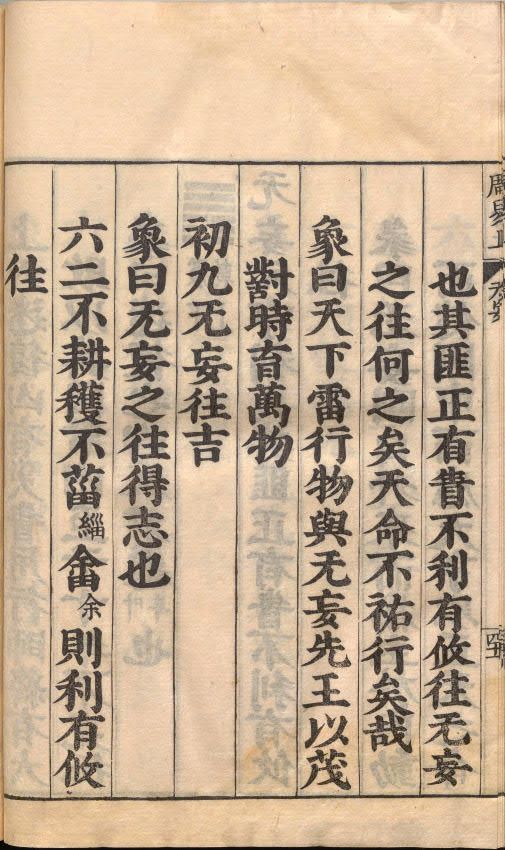 周易上 无妄
也其匪正有眚不利有攸往无妄
之往何之矣天命不祐行矣哉
象曰天下雷行物與无妄先王以茂
對時育萬物
初九无妄往吉
象曰无妄之往得志也
六二不耕穫不菑緇畬余則利有攸
往